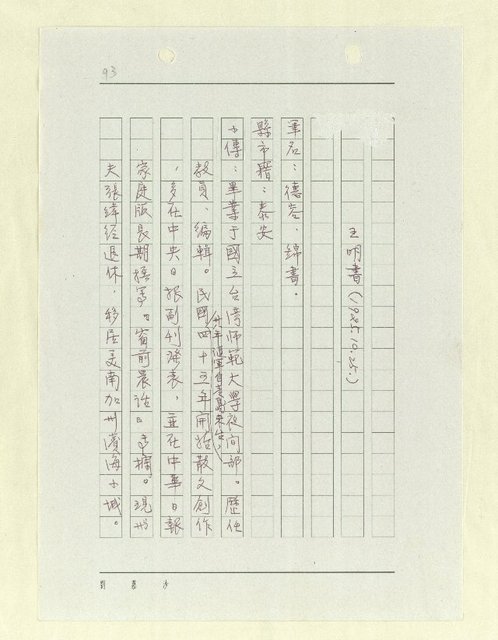 93
王明書(1925.10.25.)
筆名：德容、錦書。
縣市籍：泰安
小傳：畢業于國立台灣師範大學夜間部。歷任
教員、編輯。民國四十三年開始散文創作
(卅八年隨軍自青島來台)
，多在中央日報副刊發表，並在中華日報
家庭版長期撰寫『窗前晨話』專欄。現與
夫張緯經退休，移居美南加州濱海小城。
劉慕沙